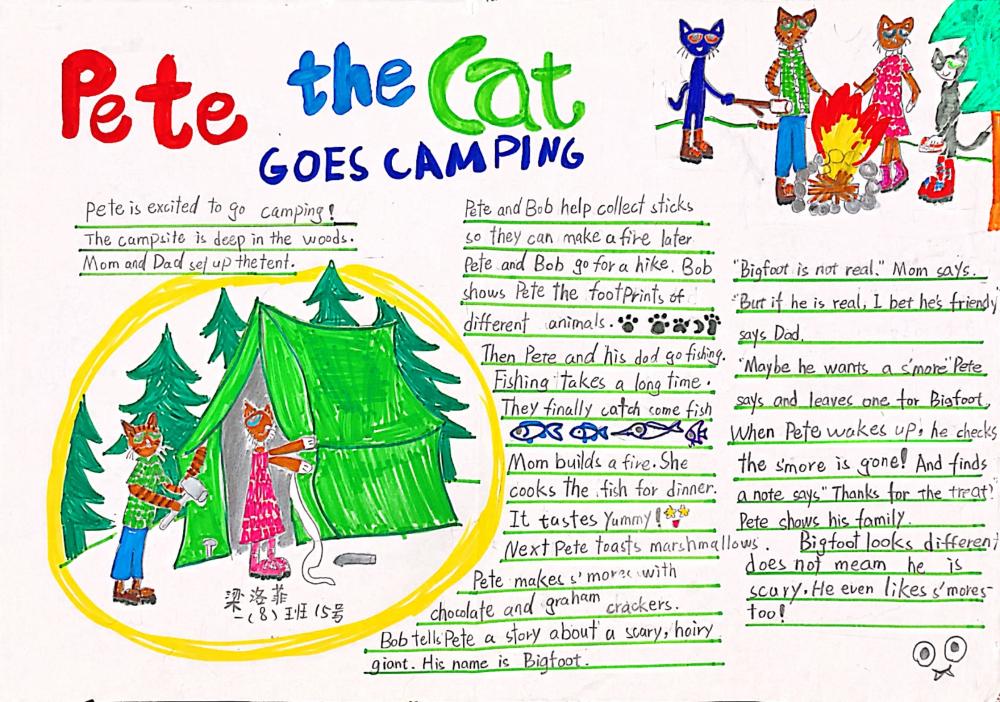 Pete the Cat
GOES CAMPING
Pete is excited to go camping!
The campsite is deep in the woods.
Mom and Dad set up the tent.
梁洛菲
一(8)王班15号
Pete and Bob help collect sticks
so they can make a fire later
Pete and Bob go for a hike. Bob
shows Pete the footprints of
different animals.
Then Pete and his dad go fishing.
Fishing takes a long time.
They finally catch come fish
Mom builds a fire. She
cooks the fish for dinner.
It tastes Yummy!
Next Pete toasts marshmallows.
Pete makes s'mores with
chocolate and graham crackers.
Bob tells Pete a story about a scary, hairy
giant. His name is Bigfoot.
"Bigfoot is not real." Mom says.
"But if he is real, I bet he's friendly
says Dad.
"Maybe he wants a s'more" Pete
says and leaves one for Bigfoot,
When Pete wakes up, he checks
the s'more is gone! And finds
a note says "Thanks for the treat!"
Pete shows his family.
Bigfoot looks different
does not meam he is
scary. He even likes s'mores-
too!